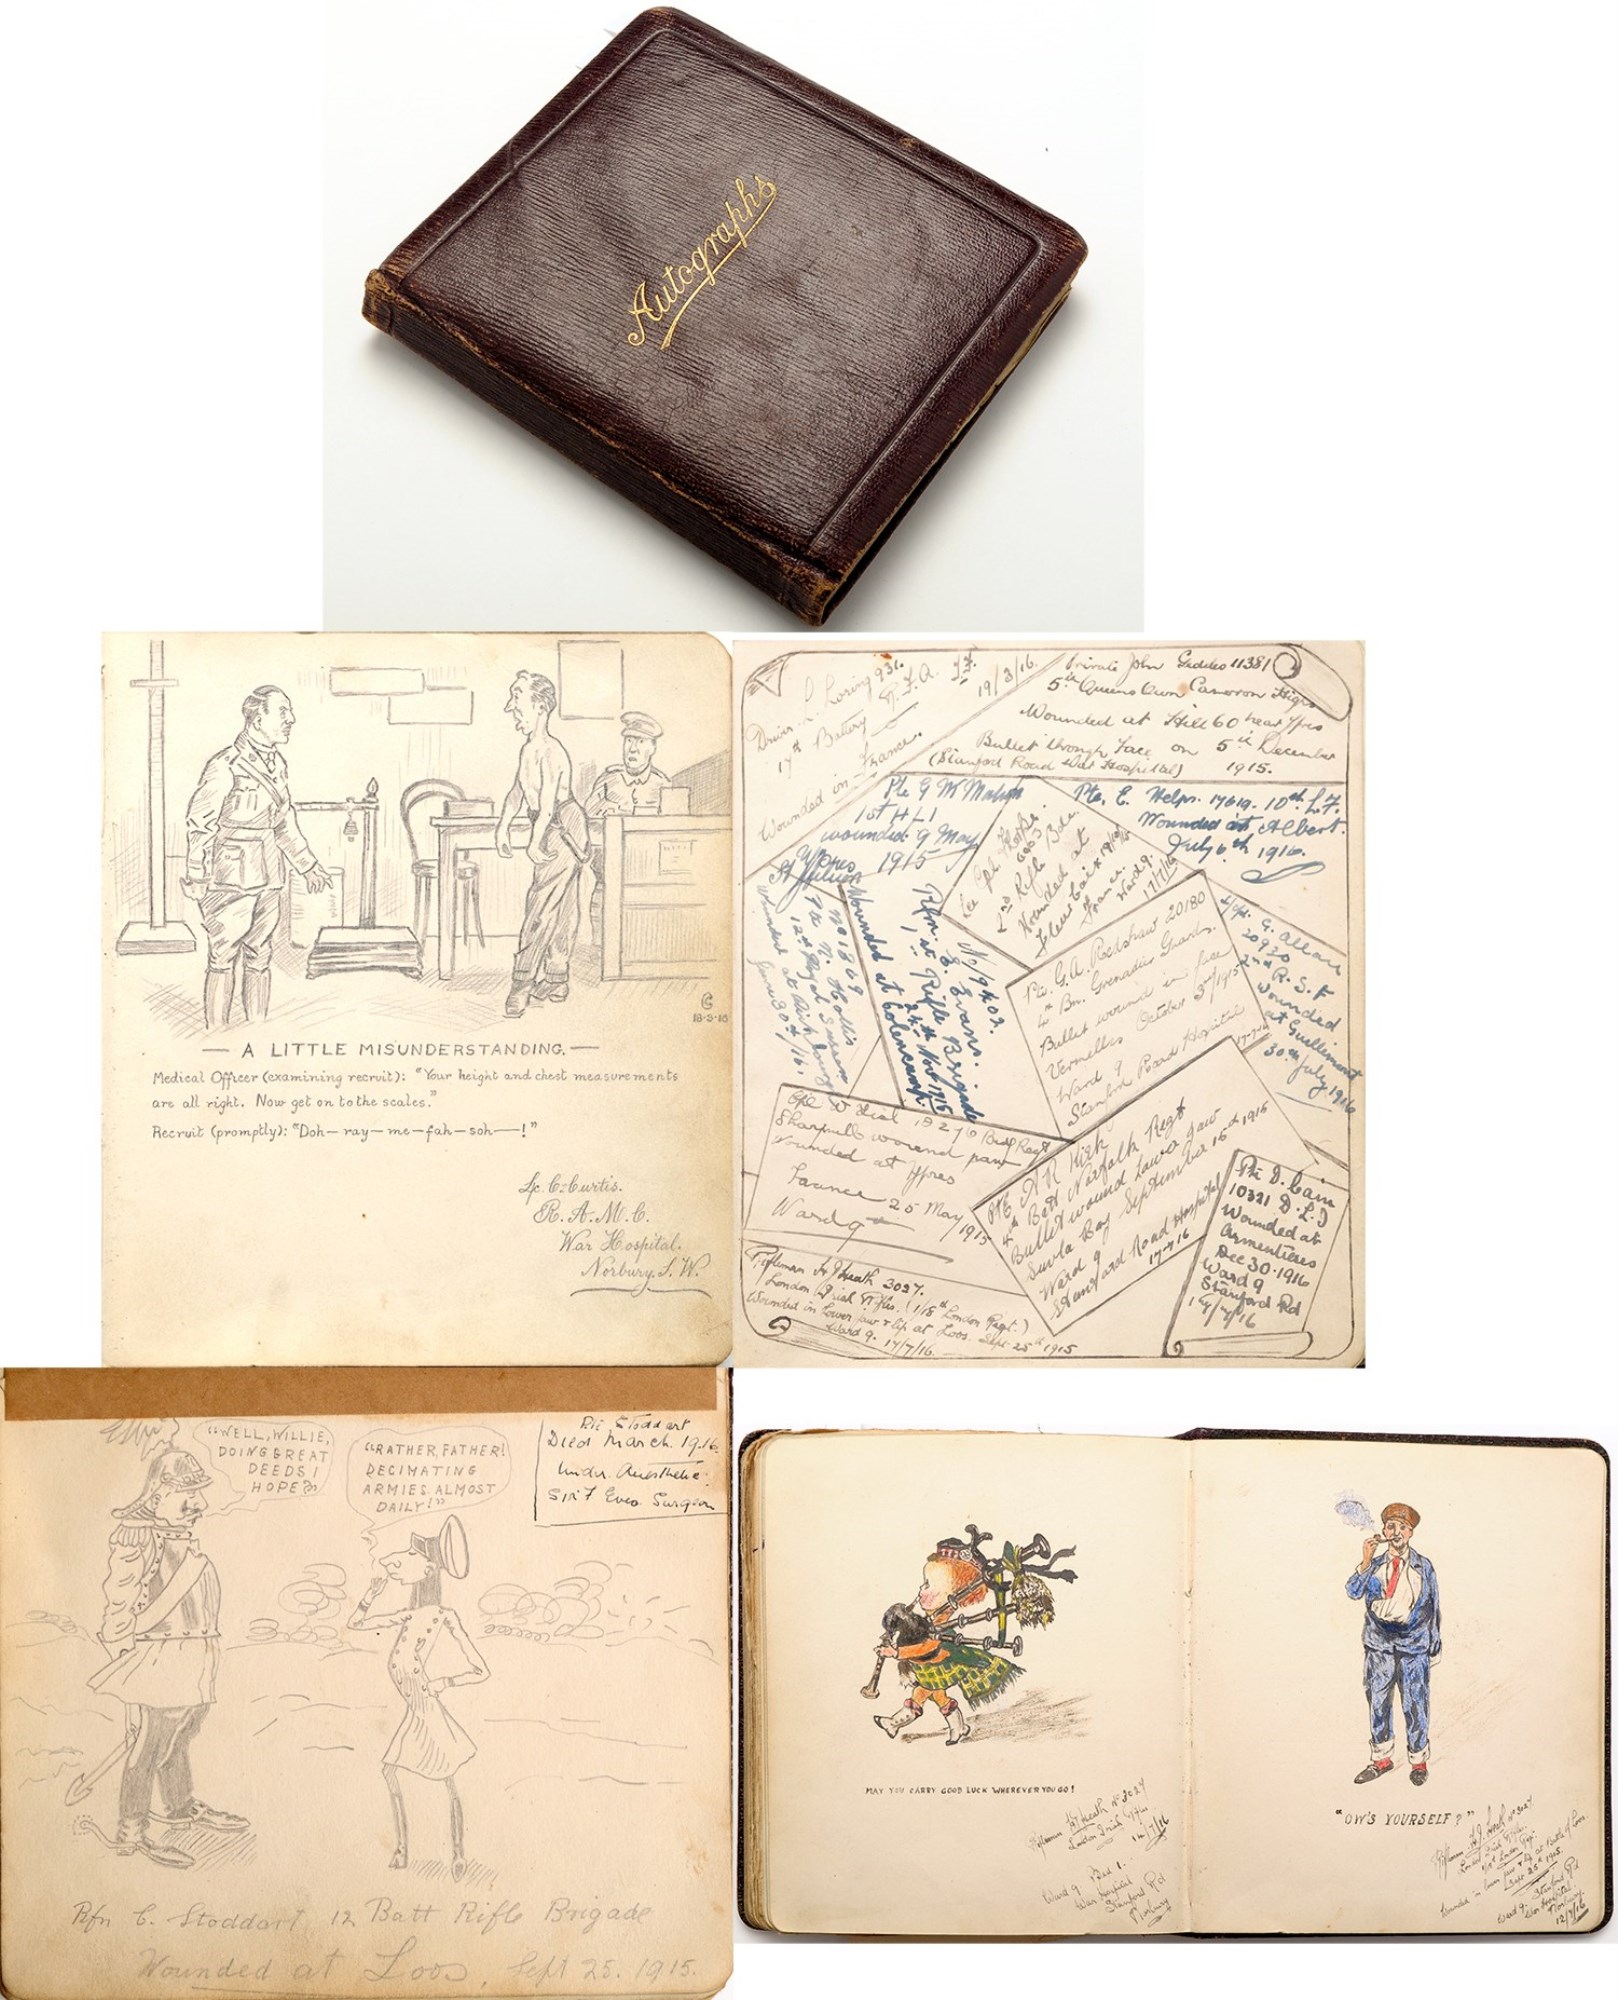 Autographs
— A LITTLE MISUNDERSTANDING. —
Medical Officer (examining recruit): "Your height and chest measurements
are all right. Now get on to the scales."
Recruit (promptly): "Doh— ray— me— fah— soh——!"
C
18-3-16
C. Curtis.
R. A. M. C.
War Hospital.
Norbury. S. W.
Driver Loring 931.
17th Battery R. F. A.
19/3/16.
Wounded in France.
Private John Geddes 11381
5th Queens Own Cameron Highrs
Wounded at Hill 60 near Ypres
Bullet through Face on 5th December
(Stanford Road War Hospital) 1915.
Pte G M
1st H L I
wounded 9 May
1915
Ypres
Pte. E. Helps. 17619. 10th L.F.
Wounded at Albert.
July 6th 1916.
2nd Rifle Bde
Wounded at
France.
Ward 9.
17/7/16
No 1869
Pte N. Hollis
12th Royal Sussex
Wounded at
June 30th/16.
No/9403.
Rfm. E. Evans.
1st Rifle Brigade
Wounded at Colencamp
Nov 1915
Pte. G. A. Redshaw 20180
4th Bn. Grenadier Guards.
Bullet wound in face
Vermelles October 3rd/1915
Ward 9
Stanford Road Hospital
17-7-16
G. Allan
20930
2nd R. S. F
Wounded
at Guillemont
30th July 1916
W Dial 18276
wound
Wounded at Ypres
France 25 May
1915
Ward 9
Pte A R Kirk
4th Batt Norfolk Regt
Bullet wound Lower Jaw
Suvla Bay September 15th 1915
Ward 9
Stanford Road Hospital
17-7-16
Pte D. Cain
10321 D.L.I
Wounded at
Armentieres
Dec 30-1916
Ward 9
Stanford Rd
17/7/16
Rifleman H J Heath 3027.
London Irish Rifles. (1/18th London Regt.)
Wounded in Lower jaw & lip at Loos. Sept 25th 1915
Ward 9. 17/7/16.
"WELL, WILLIE,
DOING GREAT
DEEDS I
HOPE?"
"RATHER, FATHER!
DECIMATING
ARMIES ALMOST
DAILY!"
Stoddart
Died March. 1916
Under. Anesthetic
Sir F Eves. Surgeon
Rfn C. Stoddart 12 Batt Rifle Brigade
Wounded at Loos, Sept 25. 1915.
MAY YOU CARRY GOOD LUCK WHEREVER YOU GO!
Rifleman H J Heath No 3027
London Irish Rifles
14/7/16
Ward 9. Bed 1.
War Hospital
Stanford Rd
Norbury
"OW'S YOURSELF?"
Rifleman H. J. Heath No 3027.
London Irish Rifles.
1/18th London Regt.
Wounded in lower jaw & lip at Battle of Loos.
Sept 25th 1915.
Ward 9. Stanford Rd
War Hospital
Norbury
12/7/16